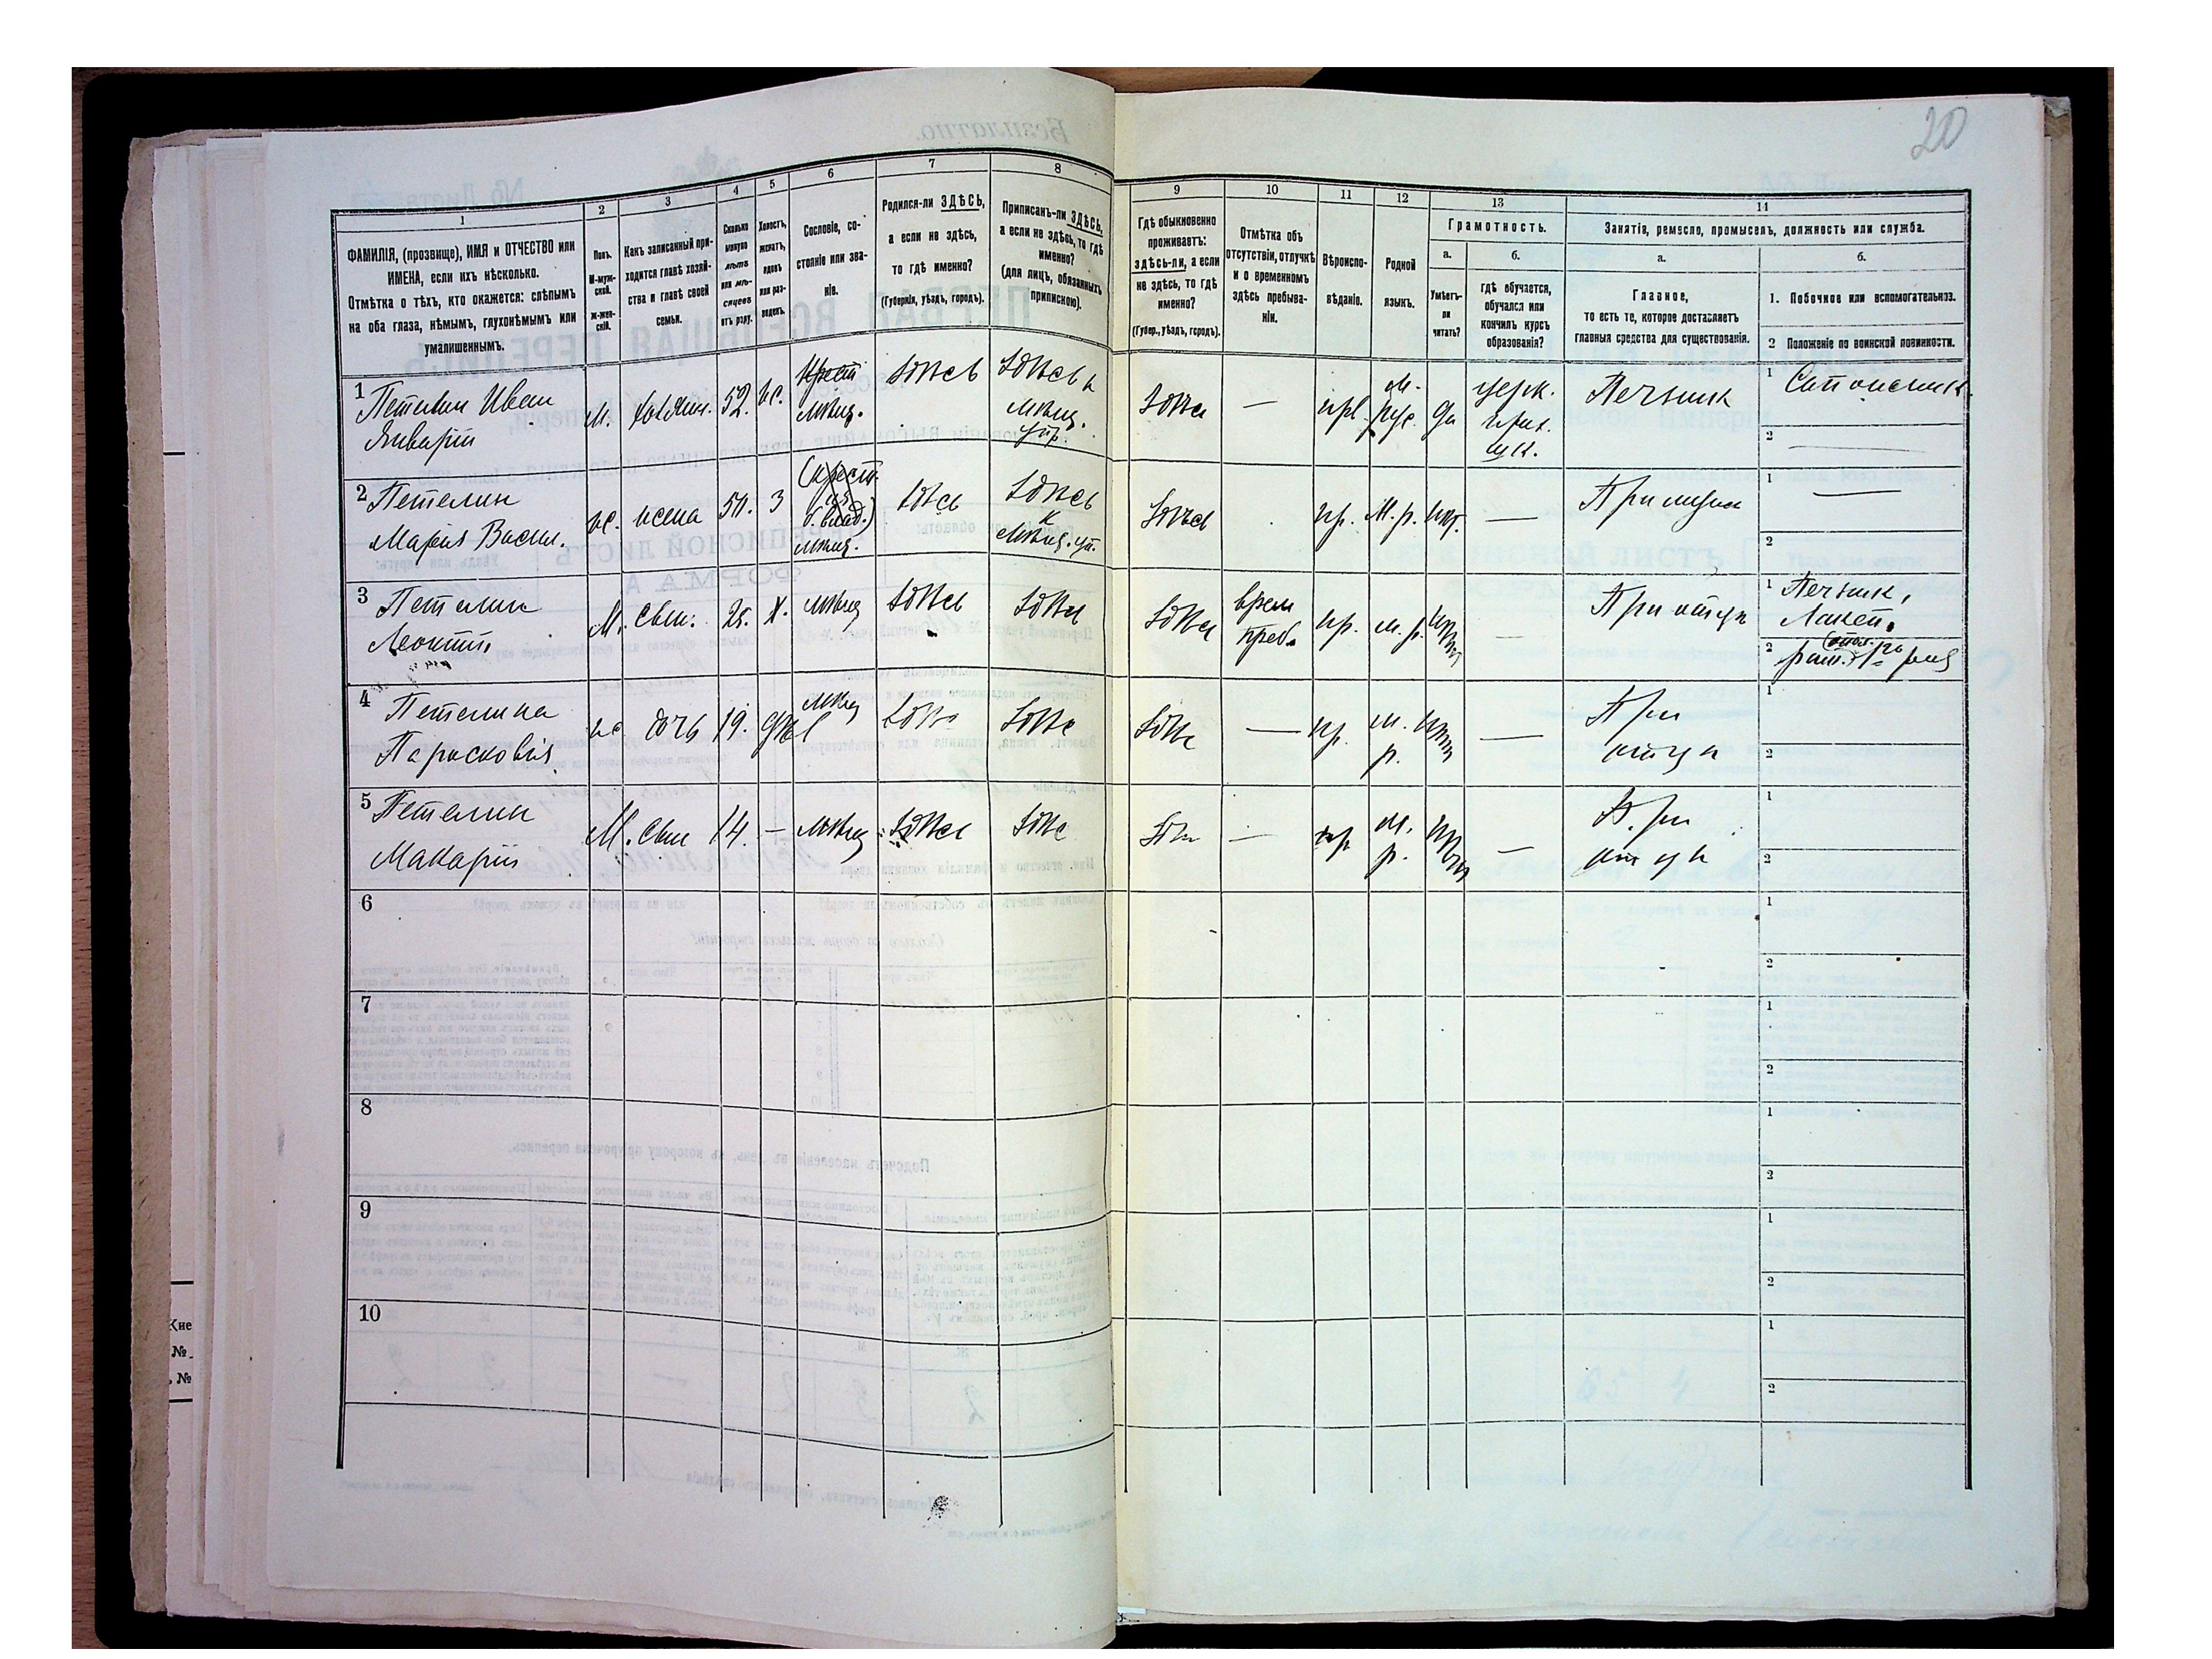 20
1
2
3
4
5
6
7
8
9
10
11
12
13
14
ФАМИЛІЯ, (прозвище), ИМЯ и ОТЧЕСТВО или
ИМЕНА, если ихъ нѣсколько.
Отмѣтка о тѣхъ, кто окажется: слѣпымъ
на оба глаза, нѣмымъ, глухонѣмымъ или
умалишеннымъ.
Полъ.
М-муж-
ской.
Ж-жен-
скій.
Какъ записанный при-
ходится главѣ хозяй-
ства и главѣ своей
семьи.
Сколько
минуло
лѣтъ
или мѣ-
сяцевъ
отъ роду.
Холостъ,
женатъ,
вдовъ
или раз-
веденъ.
Сословіе, со-
стояніе или зва-
ніе.
Родился-ли ЗДѢСЬ,
а если не здѣсь,
то гдѣ именно?
(Губернія, уѣздъ, городъ).
Приписанъ-ли ЗДѢСЬ,
а если не здѣсь, то гдѣ
именно?
(для лицъ, обязанныхъ
припискою).
Гдѣ обыкновенно
проживаетъ:
здѣсь-ли, а если
не здѣсь, то гдѣ
именно?
(Губер., уѣздъ, городъ).
Отмѣтка объ
отсутствіи, отлучкѣ
и о временномъ
здѣсь пребыва-
ніи.
Вѣроиспо-
вѣданіе.
Родной
языкъ.
Грамотность.
а.
Умѣетъ-
ли
читать?
б.
гдѣ обучается,
обучался или
кончилъ курсъ
образованія?
Занятія, ремесло, промыселъ, должность или служба.
а.
Главное,
то есть то, которое доставляетъ
главныя средства для существованія.
б.
1. Побочное или вспомогательное.
2 Положеніе по воинской повинности.
1 Петелин Иван
Январіи
М. хозяин. 52. ж.
Крест
мѣщ.
здѣсь
здѣсь к
мѣщ.
упр.
здѣсь
—
прв.
м.
рус.
да
церк.
прих.
шк.
Печник
1 Сапожник
2 —
2 Петелин
Марія Васил.
ж. жена 50. з
(крест.
из
б. влад.)
мѣщ.
здѣсь
здѣсь
к
мѣщ. уп.
здѣсь
пр. м.р. нѣт. —
При мужи
1 —
2
3 Петелин
Леонтіи
М. сын. 25. х. мѣщ
здѣсь
здѣсь
здѣсь
врем
преб.
пр. м.р. нѣт
При отци
1 Печник,
Лакей.
2
4 Петелина
Парасковія
ж дочь 19. дѣв
мѣщ
здѣс
здѣс
здѣс
—
пр.
м.
р.
нѣт
—
При
отци
1
2
5 Петелин
Макаріи
М. сын 14. — мѣщ
здѣсь
здѣс
—
пр
м.
р.
—
При
отци
1
2
6
1
2
7
1
2
8
1
2
9
1
2
10
1
2
№
№